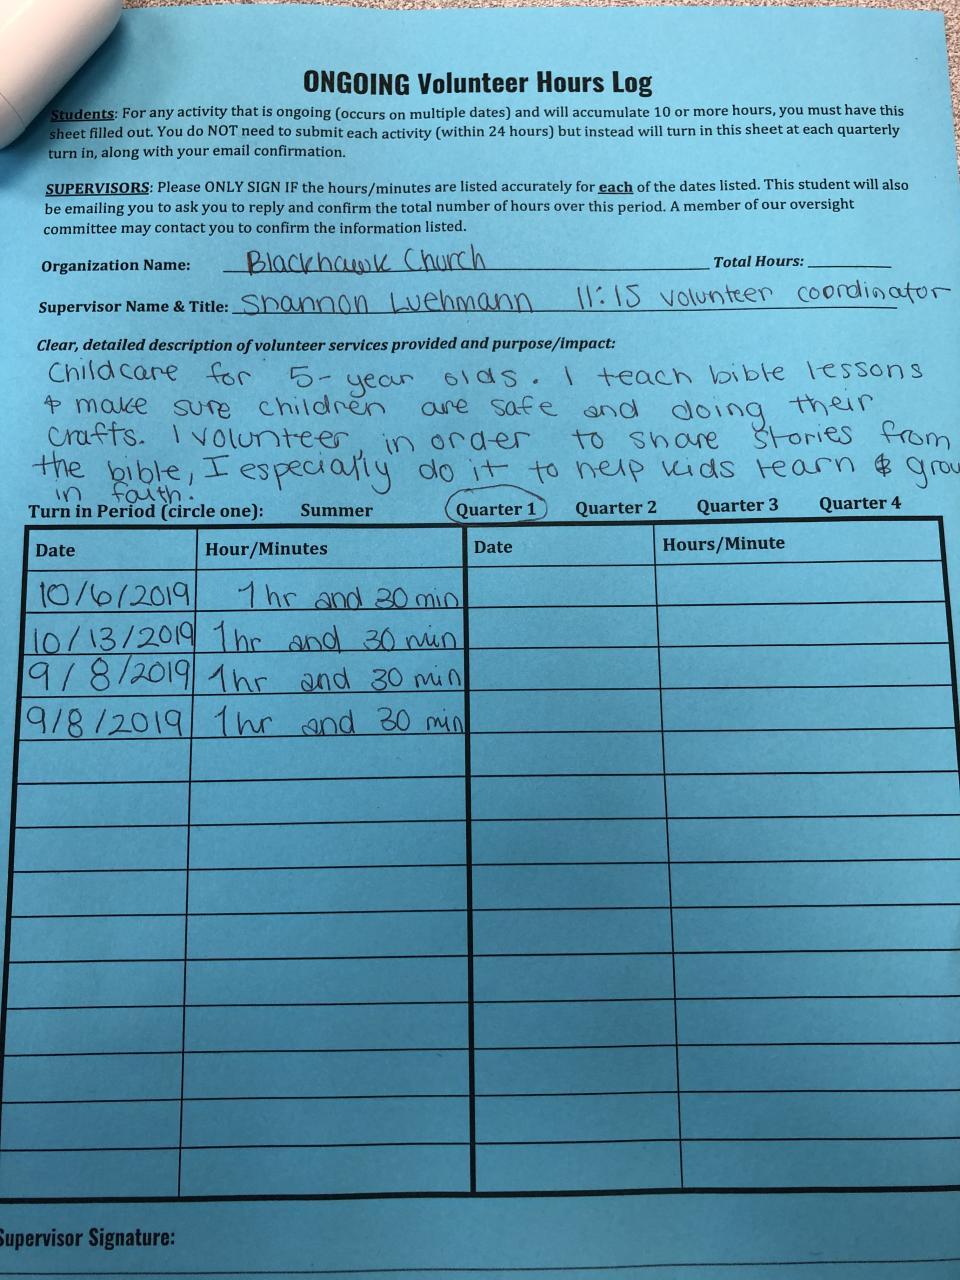 ONGOING Volunteer Hours Log
Students: For any activity that is ongoing (occurs on multiple dates) and will accumulate 10 or more hours, you must have this
sheet filled out. You do NOT need to submit each activity (within 24 hours) but instead will turn in this sheet at each quarterly
turn in, along with your email confirmation.
SUPERVISORS: Please ONLY SIGN IF the hours/minutes are listed accurately for each of the dates listed. This student will also
be emailing you to ask you to reply and confirm the total number of hours over this period. A member of our oversight
committee may contact you to confirm the information listed.
Organization Name: Blackhawk Church Total Hours:
Supervisor Name & Title: Shannon Luehmann 11:15 volunteer coordinator
Clear, detailed description of volunteer services provided and purpose/impact:
Childcare for 5-year olds. I teach bible lessons
& make sure children are safe and doing their
crafts. I volunteer in order to share stories from
the bible, I especially do it to help kids learn & grow
in faith.
Turn in Period (circle one): Summer Quarter 1 Quarter 2 Quarter 3 Quarter 4
Date Hour/Minutes Date Hours/Minute
10/6/2019 1 hr and 30 min
10/13/2019 1 hr and 30 min
9/8/2019 1 hr and 30 min
9/8/2019 1 hr and 30 min
Supervisor Signature: